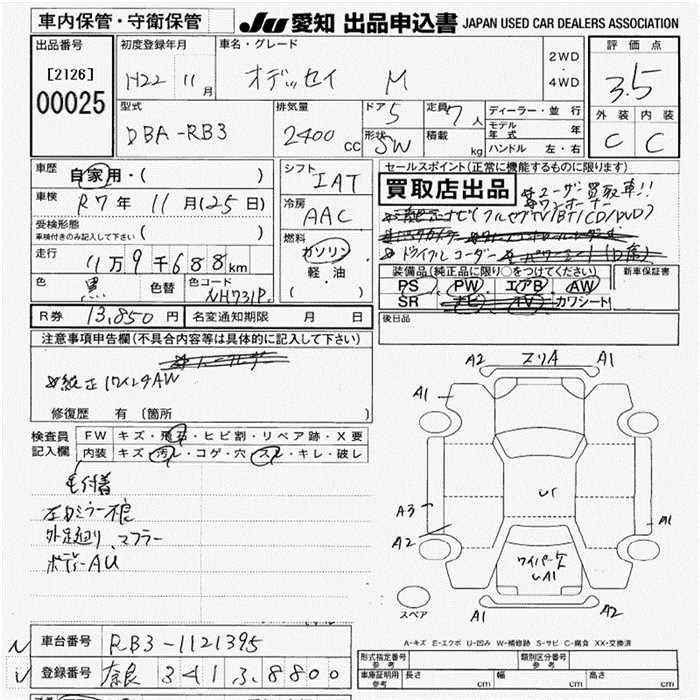 車内保管・守衛保管 JU 愛知 出品申込書 JAPAN USED CAR DEALERS ASSOCIATION
出品番号 初度登録年月 車名・グレード 2WD ・ 4WD 評価点
[2126] H22 11月 オデッセイ M 3.5
00025 型式 排気量 ドア 5 定員 7人 ディーラー・並行 外装 内装
DBA-RB3 2400cc 形状 SW 積載 kg モデル年式 年 C C
ハンドル 左・右
車歴 自家用・( ) シフト IAT セールスポイント(正常に機能するものに限ります)
車検 R7年 11月(25日) 冷房 AAC 買取店出品 ※ユーザー買取車!!
※ワンオーナー
ナビ(フルセグTV/BT/CD/DVD)
受検形態
車検付きのみ記入して下さい( ) 燃料 ガソリン
走行 11万9千688km 軽・油 ※ドライブレコーダー
色 黒 色替 色コード NH731P ( ) 装備品(純正品に限り○をつけてください) 新車保証書
PS PW エアB AW
SR ナビ TV カワシート
R券 13,850円 名変通知期限 月 日 後日品
注意事項申告欄(不具合内容等は具体的に記入して下さい)
※純正17インチAW
修復歴 有 (箇所 )
検査員 FW キズ・飛石・ヒビ割・リペア跡・X要
記入欄 内装 キズ・汚レ・コゲ・穴・スレ・キレ・破レ
A2 マリA A1
A1
毛付着
左ドミラー根
外足廻り、マフラー
ボディーAU
U1
A3
A1
A2
ワイパーケ
UA1
スペア
A1 A2
車台番号 RB3-1121395
登録番号 奈良 341 ふ 8800
A-キズ E-エクボ U-凹み W-補修跡 S-サビ C-腐食 XX-交換済
形式指定番号 参考 類別区分番号 参考
車庫証明用 参考 長さ cm 幅 cm 高さ cm